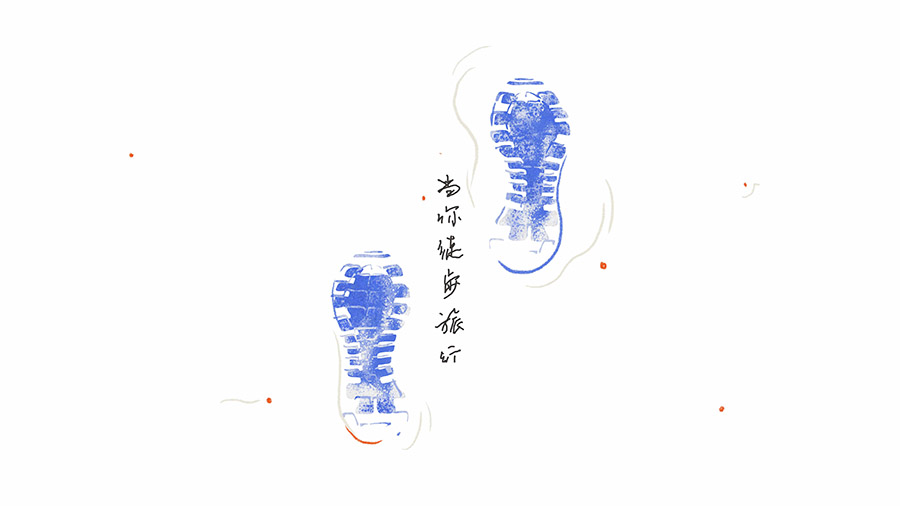 当你徒步旅行